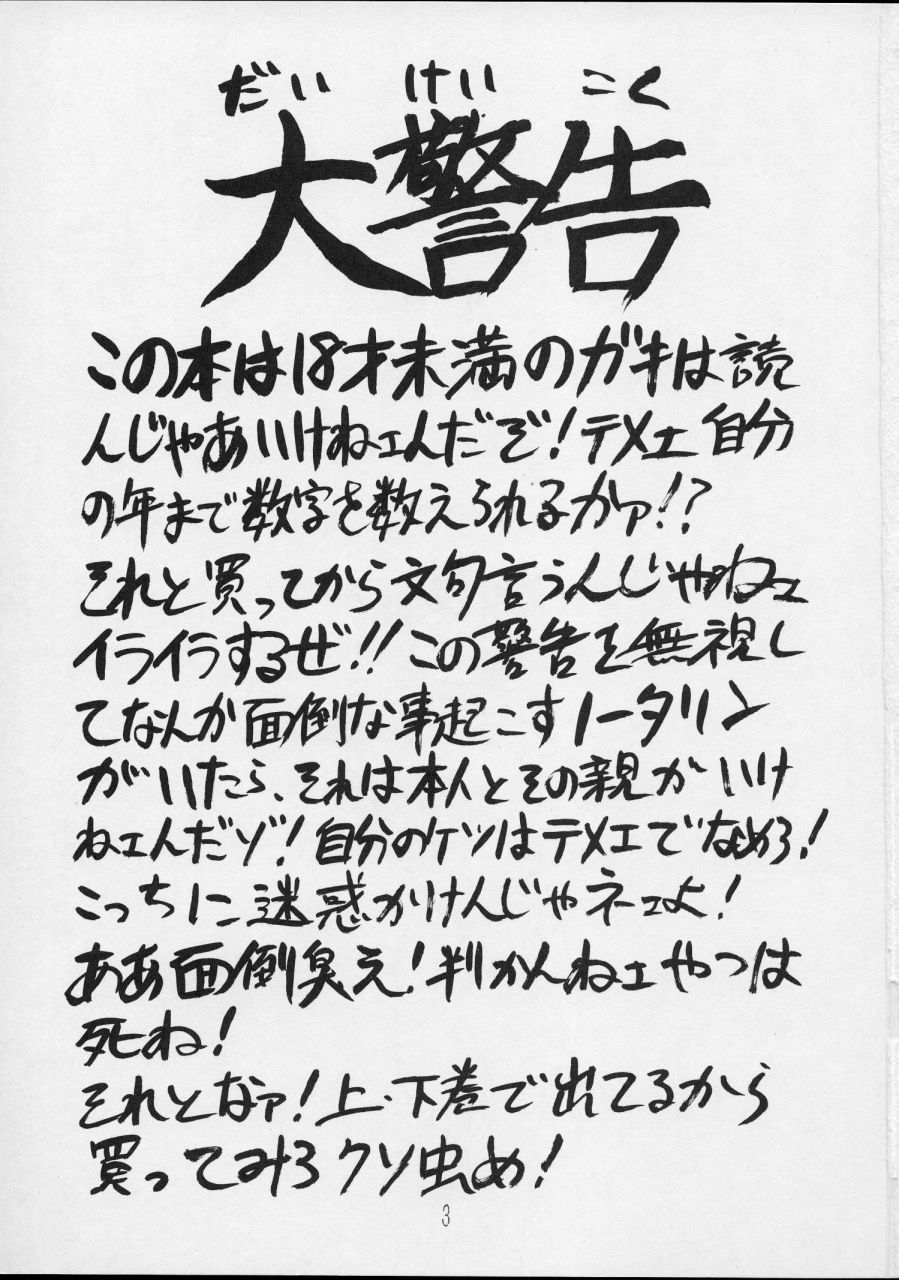 だい けい こく
大警告
この本は18才未満のガキは読
んじゃあいけねェんだぞ!テメェ自分
の年まで数字を数えられるかァ!?
それと買ってから文句言うんじゃねェ
イライラするぜ!!この警告を無視し
てなんか面倒な事起こすノータリン
がいたら、それは本人とその親がいけ
ねェんだゾ!自分のケツはテメエでなめろ!
こっちに迷惑かけんじゃネェよ!
ああ面倒臭え!判かんねェやつは
死ね!
それとなァ!上・下巻で出てるから
買ってみろクソ虫め!
3